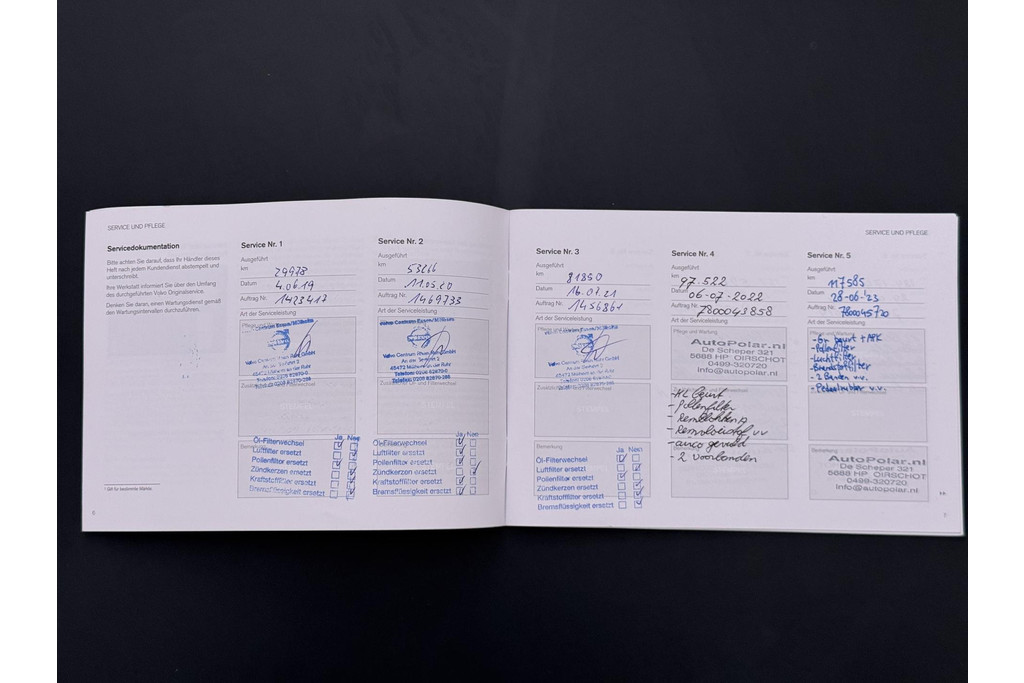 SERVICE UND PFLEGE
Servicedokumentation
Bitte achten Sie darauf, dass Ihr Händler dieses
Heft nach jedem Kundendienst abstempelt und
unterschreibt.
Ihre Werkstatt informiert Sie über den Umfang
des durchgeführten Volvo Originalservice.
Denken Sie daran, einen Wartungsdienst gemäß
den Wartungsintervallen durchzuführen.
* Gilt für bestimmte Märkte.
6
Service Nr. 1
Ausgeführt
km 29978
Datum 4.06.19
Auftrag Nr. 1423417
Art der Serviceleistung
Pflege und Wartung
Volvo Centrum Rhein Ruhr GmbH
An der Seilfahrt 2
45472 Mülheim an der Ruhr
Telefon: 0208 82870-0
Telefax: 0208 82870-288
Ja Nein
Öl-Filterwechsel
Luftfilter ersetzt
Pollenfilter ersetzt
Zündkerzen ersetzt
Kraftstofffilter ersetzt
Bremsflüssigkeit ersetzt
Service Nr. 2
Ausgeführt
km 53266
Datum 11.05.20
Auftrag Nr. 1469733
Art der Serviceleistung
Volvo Centrum Rhein Ruhr GmbH
45472 Mülheim an der Ruhr
Telefon: 0208 82870-0
Telefax: 0208 82870-288
Ja Nein
Öl-Filterwechsel
Luftfilter ersetzt
Pollenfilter ersetzt
Zündkerzen ersetzt
Kraftstofffilter ersetzt
Bremsflüssigkeit ersetzt
SERVICE UND PFLEGE
Service Nr. 3
Ausgeführt
km 81850
Datum 16.07.21
Auftrag Nr. 1456861
Art der Serviceleistung
Pflege und Wartung
Volvo Centrum Rhein Ruhr GmbH
45472 Mülheim an der Ruhr
Bemerkung
Ja Nein
Öl-Filterwechsel
Luftfilter ersetzt
Pollenfilter ersetzt
Zündkerzen ersetzt
Kraftstofffilter ersetzt
Bremsflüssigkeit ersetzt
Service Nr. 4
Ausgeführt
km 97.522
Datum 06-07-2022
Auftrag Nr. 7800043858
Art der Serviceleistung
Pflege und Wartung
AutoPolar.nl
De Scheper 321
5688 HP OIRSCHOT
0499-320720
info@autopolar.nl
- Pollenfilter
- Remvloeistof vv
- airco gevuld
- 2 voorbanden
Service Nr. 5
Ausgeführt
km 117585
Datum 28-06-'23
Auftrag Nr. 7800045720
Art der Serviceleistung
- Gr beurt + APK
- Pollenfilter
- Luchtfilter
- Brandstoffilter
- 2 Banden v.v.
Bemerkung
AutoPolar.nl
De Scheper 321
5688 HP OIRSCHOT
0499-320720
info@autopolar.nl
7